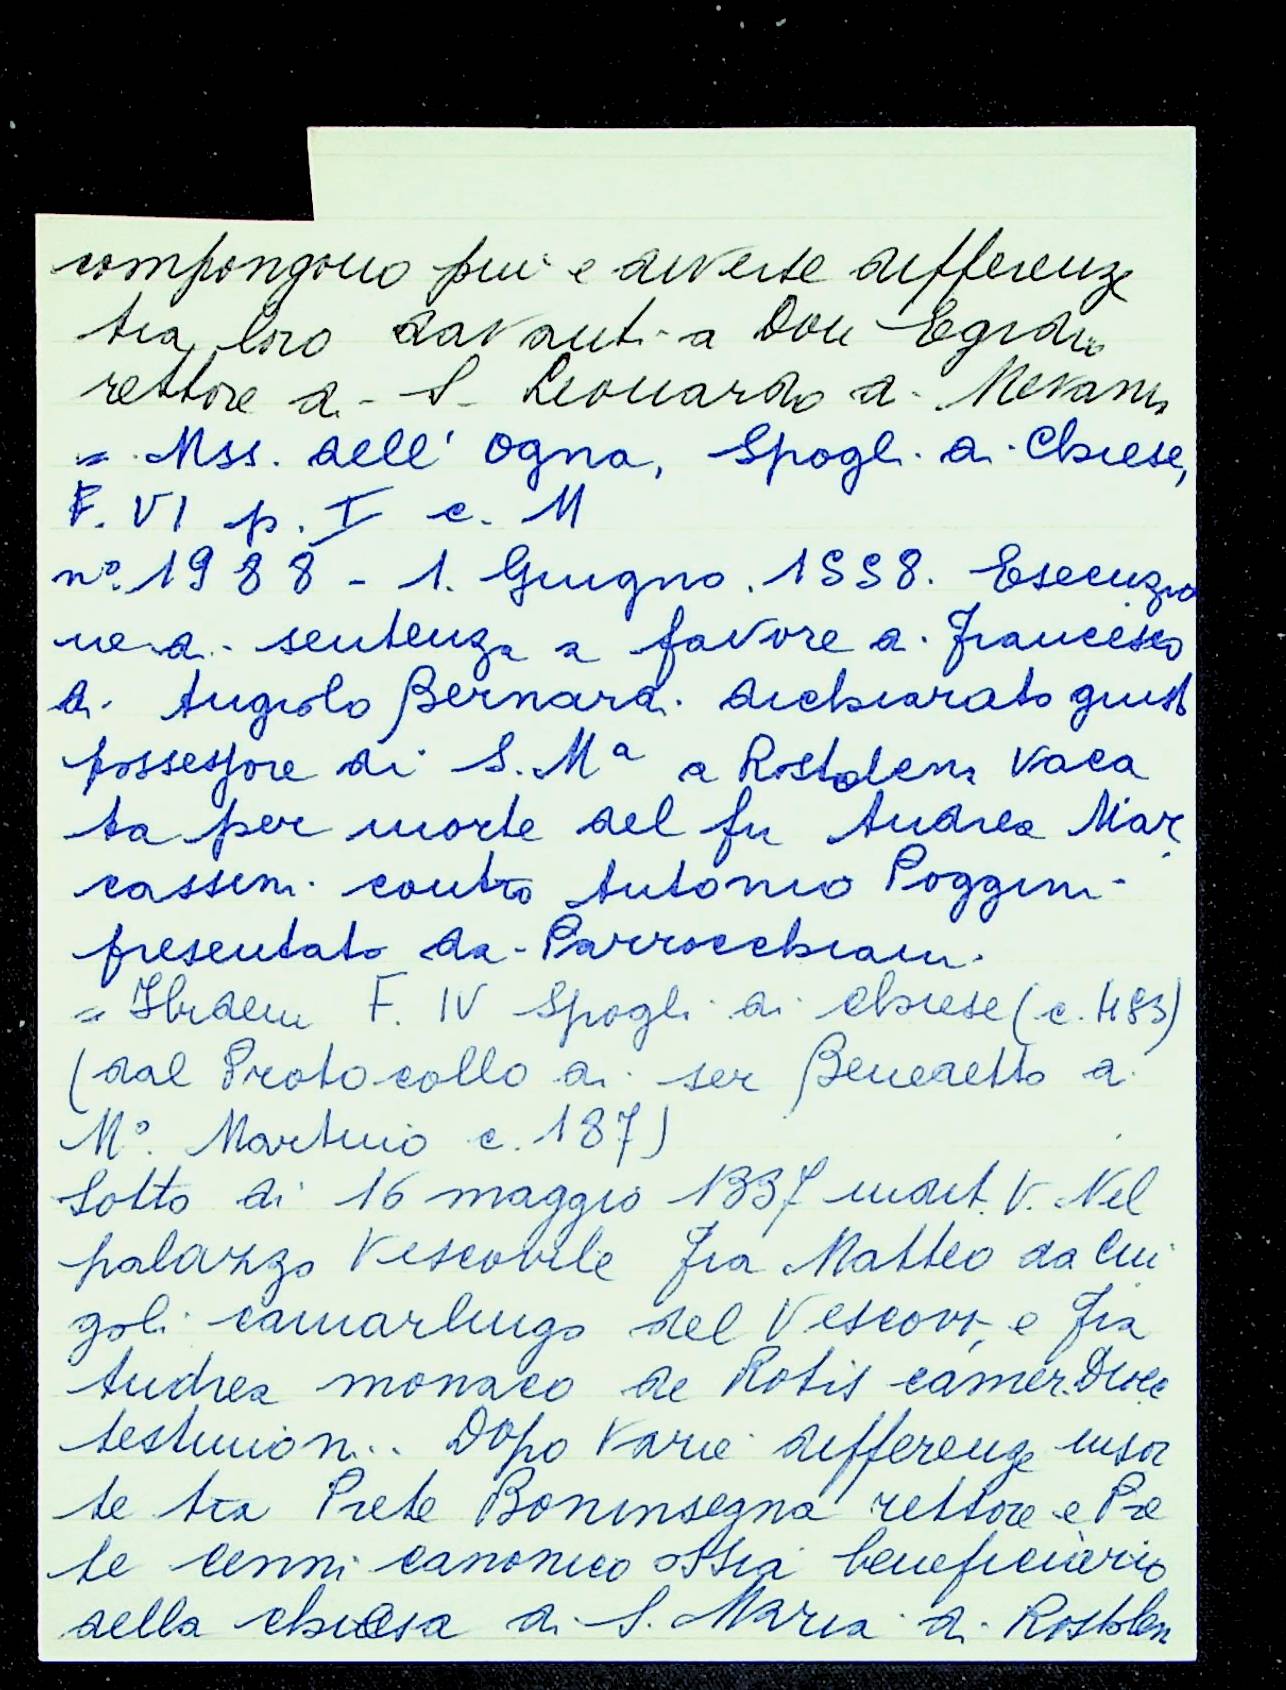 compongono più e diverse differenze
tra loro davanti a Don Egidio
rettore di S. Leonardo a
= Mss. dell' Ogna, Spogli di Chiese,
F. VI p. I c. M
nº. 1988 - 1. Giugno. 1558. Esecuzio
ne di sentenza a favore di Francesco
di Angiolo Bernardi dichiarato giust
possessore di S. Mª a Rostolena vaca
ta per morte del fu Andrea Mar
cassini contro Antonio Poggini
presentato da Parrocchiani.
= Ibidem F. IV Spogli di chiese (c. 483)
(dal Protocollo di ser Benedetto di
Mº. Martino c. 187)
Sotto di 16 maggio 1337 indit. V. Nel
palazzo Vescovile fra Matteo da Cin
goli camarlingo del Vescovo, e fra
Andrea monaco de Rotis camer.
testimoni.. Dopo varie differenze insor
te tra Prete Boninsegna rettore e Pre
te Cenni canonico ossia beneficiario
della chiesa di S. Maria di Rostolen